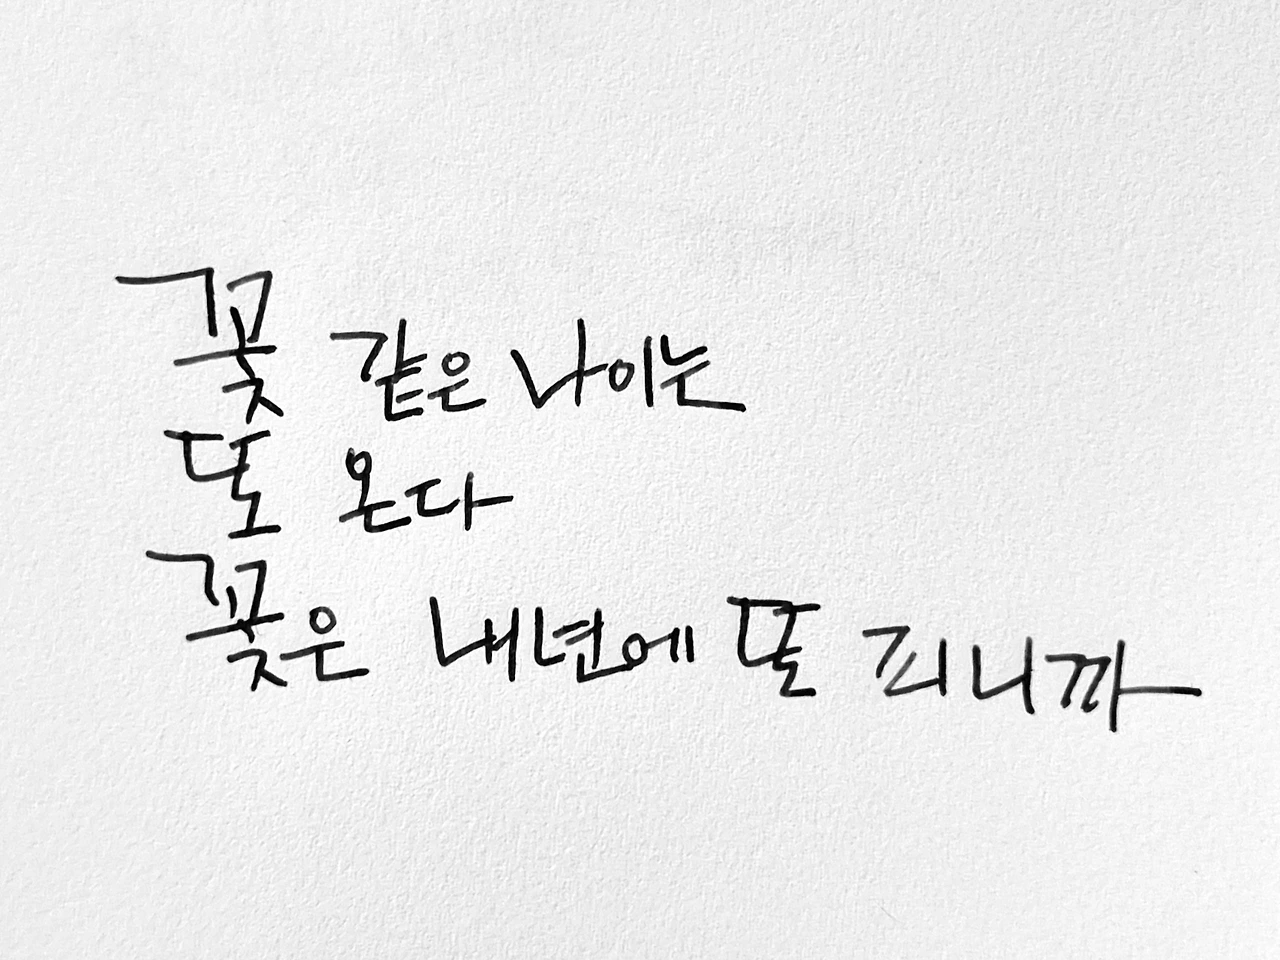 꽃 같은 나이는
또 온다
꽃은 내년에 또 피니까